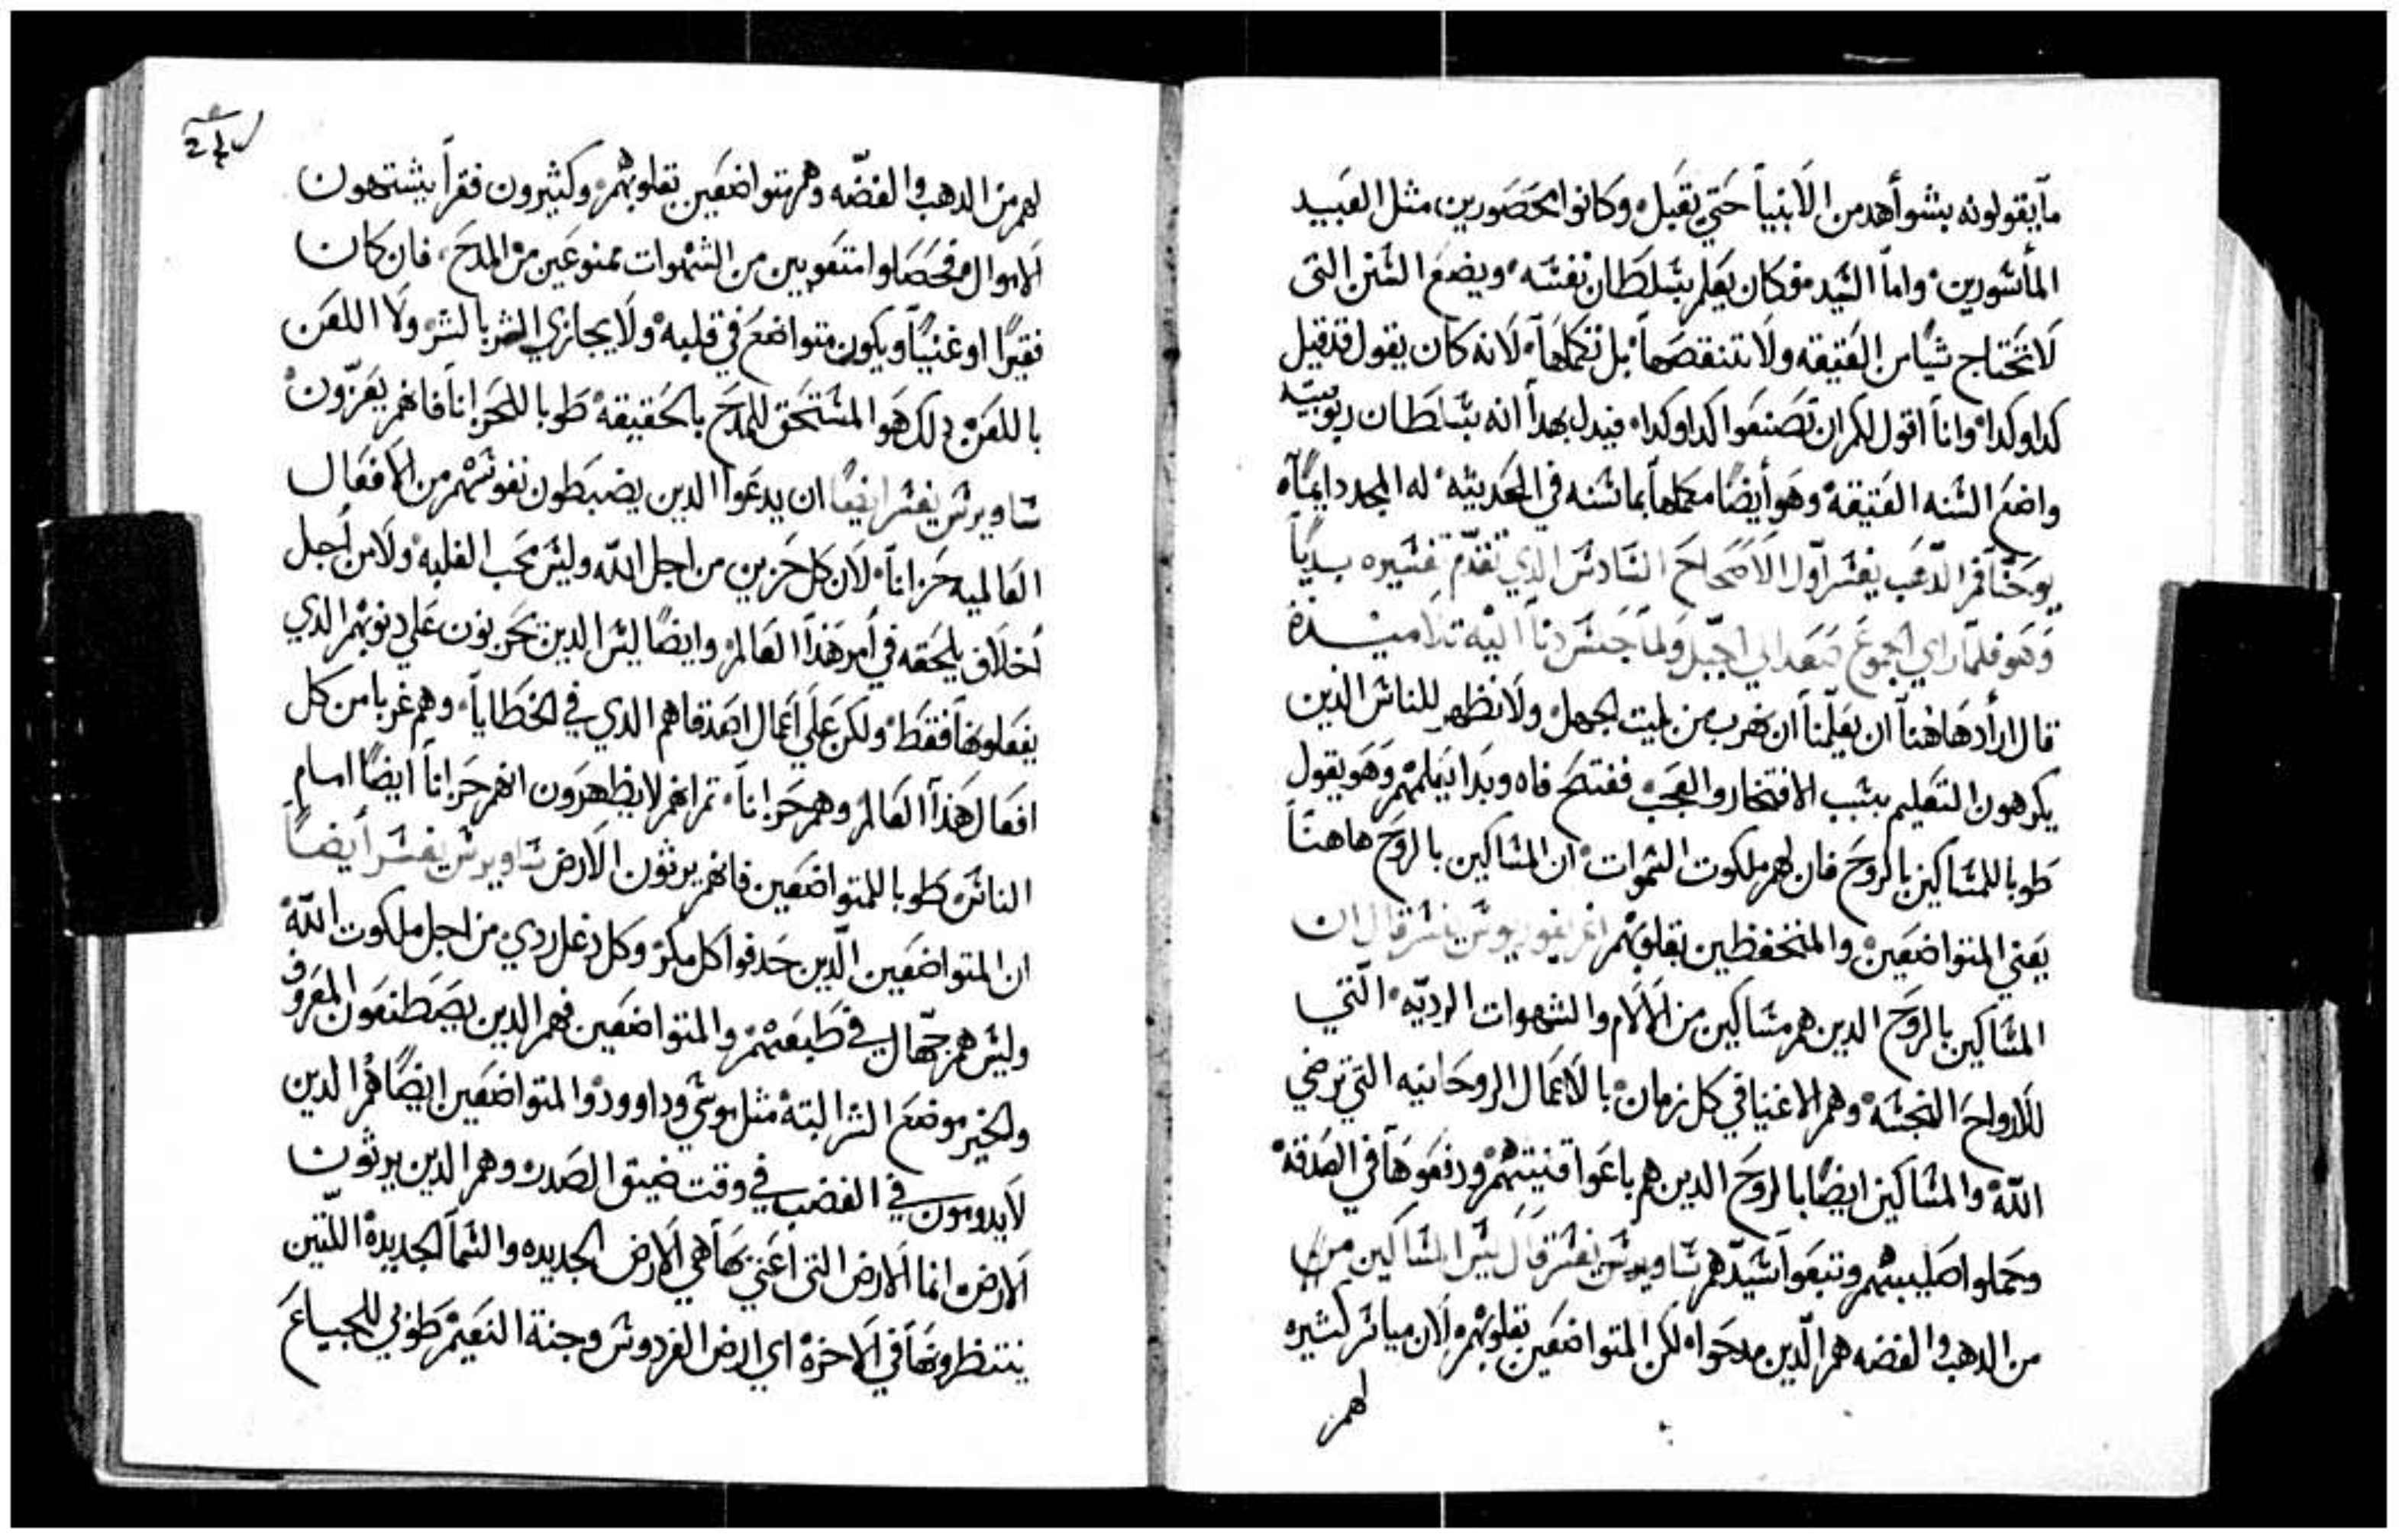 مآ يقولونه بشو أهد من الآنبيآ حتي يقبل وكانوا محصورين مثل العبيد
المأسورين واما السيد فوكان يعلم بسلطان نفسه ويضع السنن التى
لا تحتاج شيًا من العتيقه ولا تنقصها بل تكملها لانه كان يقول قد قيل
كدا وكدا وانا اقول لكم ان تصنعوا كدا وكدا فيدل بهدا انه بسلطان ربوبيته
واضع السنه العتيقه وهو أيضًا مكملها بما سنه في الحديثه له المجد دايمًا
يوحنا فم الدهب يفسر اول الاصحاح السادس الذي تقدم تفسيره بديًا
وهو فلما راي الجموع صعد الي الجبل ولما جلس دنا اليه تلاميذه
قال اراد هاهنا ان يعلمنا ان نهرب من لميت الجهل ولا نظهر للناس الذين
يكرهون التعليم بسبب الافتخار والعجب ففتح فاه وبدا يعلمهم وهو يقول
طوبا للمساكين بالروح فان لهم ملكوت السموات ان المساكين بالروح هاهنا
يعني المتواضعين والمنخفظين بقلوبهم اغريغوريوس يفسر قال ان
المساكين بالروح الدين هم مساكين من الآلام والشهوات الرديه التي
للارواح النجسه وهم الاغنيا في كل زمان بالاعمال الروحانيه التي ترضي
الله والمساكين ايضًا بالروح الدين هم باعوا قنيتهم ودفعوها في الصدقه
وحملوا صليبهم وتبعوا سيدهم ساويرس يفسر قال ليس المساكين من
من الدهب والفضه هم الدين مدحوا لكن المتواضعين بقلوبهم لان مياسر كثيره
لهم
لهم من الدهب والفضه وهم متواضعين بقلوبهم وكثيرون فقرا يشتهون
الاموال فحصلوا متعوبين من الشهوات ممنوعين من المدح فان كان
فقيرًا او غنيًا ويكون متواضع في قلبه ولا يجازي الشر بالشر ولا اللعن
باللعن دلك هو المستحق للمدح بالحقيقه طوبا للحزانا فانهم يعزون
ساويرس يفسر ايضًا ان يدعوا الدين يضبطون نفوسهم من الافعال
العالميه حزانا لان كل حزين من اجل الله وليس محب الغلبه ولا من أجل
اخلاق يلحقه في أمر هذا العالم وايضًا ليس الدين يحزنون علي دنوبهم الدي
يفعلونها فقط ولكن علي اعمال اصدقاهم الدي في الخطايا وهم غربا من كل
افعال هذا العالم وهم حزانا ثم انهم لا يظهرون انهم حزانا ايضًا امام
الناس طوبا للمتواضعين فانهم يرثون الارض ساويرس يفسر أيضًا
ان المتواضعين الدين حدفوا كل مكر وكل دغل ردي من اجل ملكوت الله
وليس هم جهال في طبعهم والمتواضعين فهم الدين يصطنعون المعروف
والخير موضع الشر البته مثل موسي وداوود والمتواضعين ايضًا هم الدين
لا يدومون في الغضب في وقت ضيق الصدر وهم الدين يرثون
الارض انما الارض التى اعني بها هي الارض الجديده والسما الجديدة اللتين
ينتظرونها في الاخرة اي ارض الفردوس وجنة النعيم طوبي للجياع